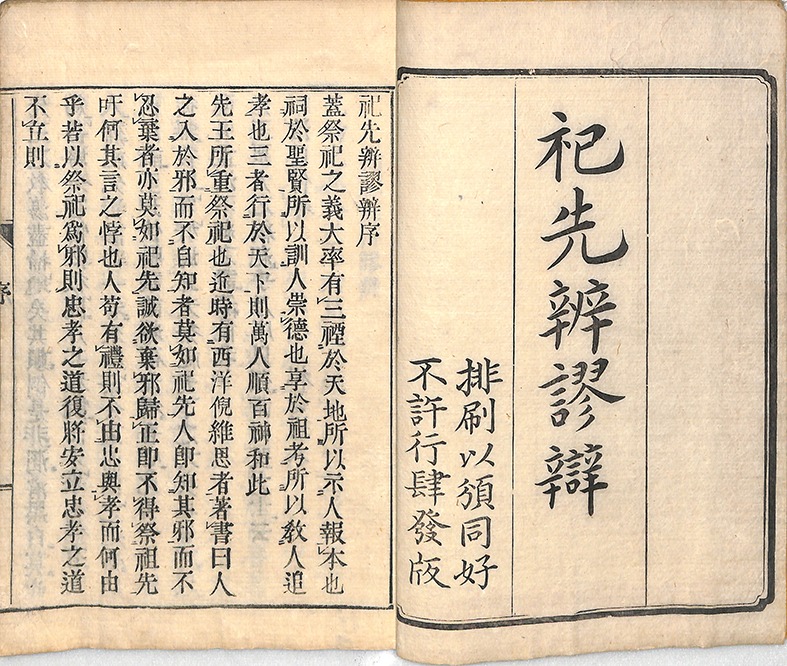 祀先辨謬辯
排刷以頒同好
不許行肆發版
祀先辨謬辨序
蓋祭祀之義大率有三禋於天地所以示人報本也
祠於聖賢所以訓人崇德也享於祖考所以教人追
孝也三者行於天下則萬人順百神和此
先王所重祭祀也近時有西洋倪維思者著書曰人
之入於邪而不自知者莫如祀先人卽知其邪而不
忍棄者亦莫如祀先誠欲棄邪歸正卽不得祭祖先
吁何其言之悖也人苟有禮則不由忠與孝而何由
乎若以祭祀爲邪則忠孝之道復將安立忠孝之道
不立則
序